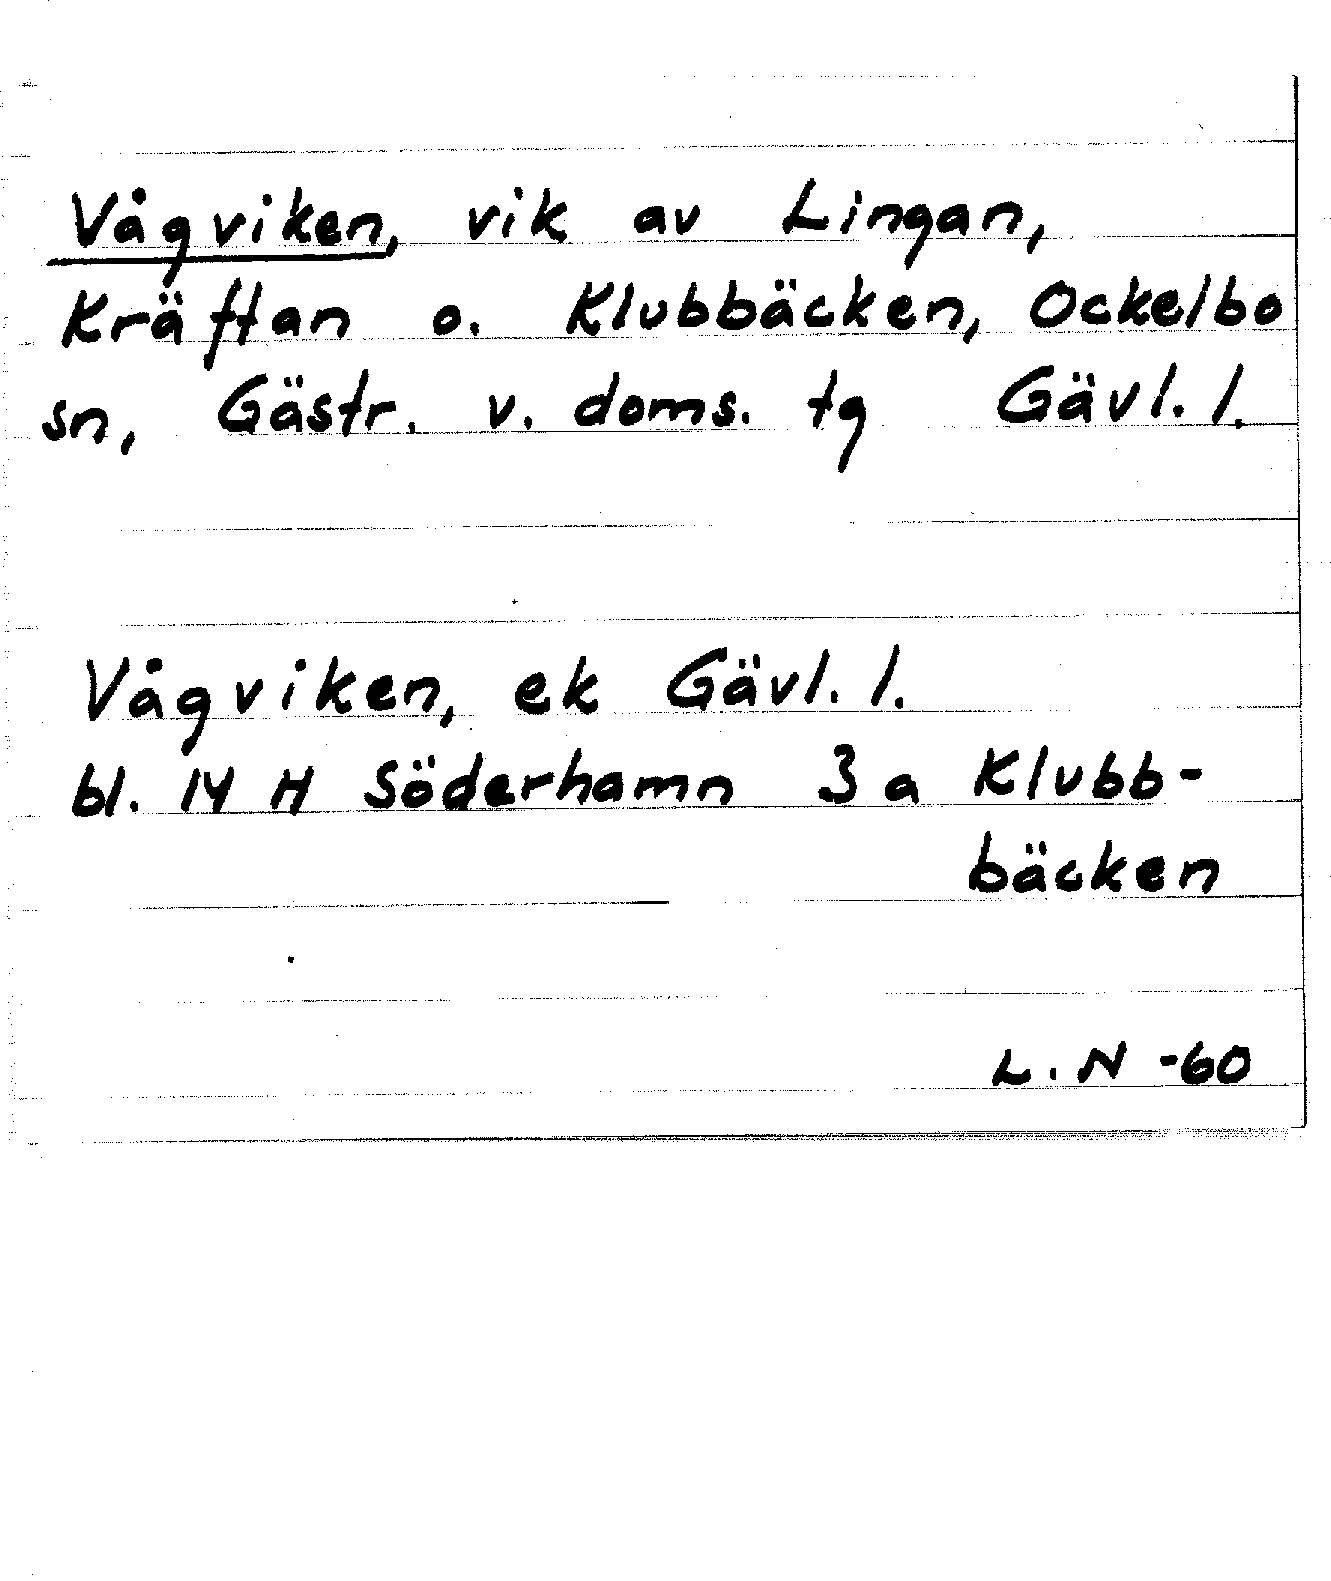 Vågviken, vik av Lingan,
Kräftan o. Klubbäcken, Ockelbo
sn, Gästr. v. doms. tg Gävl. l.
Vågviken, ek Gävl. l.
bl. 14 H Söderhamn 3 a Klubb-
bäcken
L. N -60